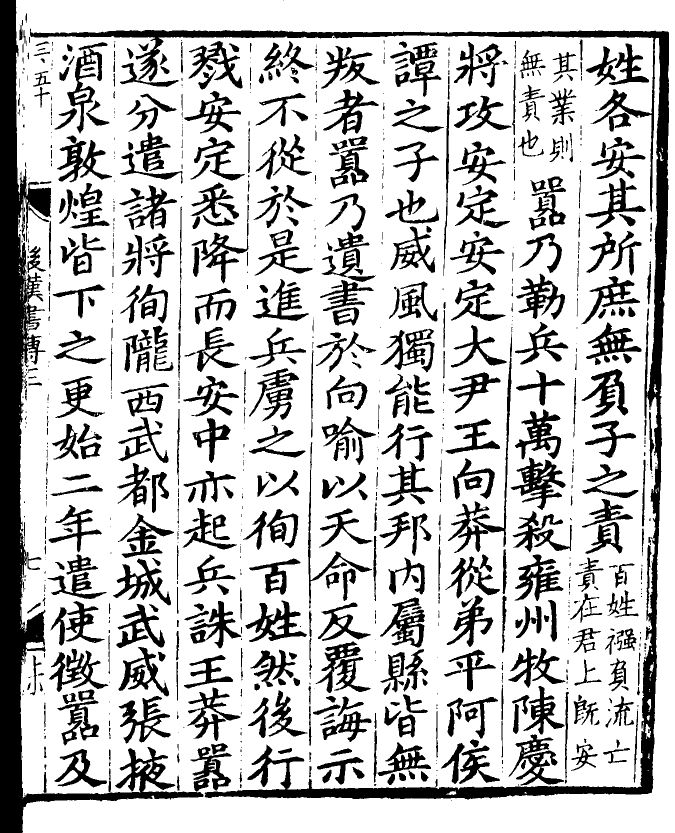 姓各安其所庶無負子之責百姓襁負流亡
責在君上既安
其業則
無責也
囂乃勒兵十萬擊殺雍州牧陳慶
將攻安定安定大尹王向莽從弟平阿侯
譚之子也威風獨能行其邦內屬縣皆無
叛者囂乃遺書於向喻以天命反覆誨示
終不從於是進兵虜之以徇百姓然後行
戮安定悉降而長安中亦起兵誅王莽囂
遂分遣諸將徇隴西武都金城武威張掖
酒泉敦煌皆下之更始二年遣使徵囂及
三、五十
後漢書傳三
七